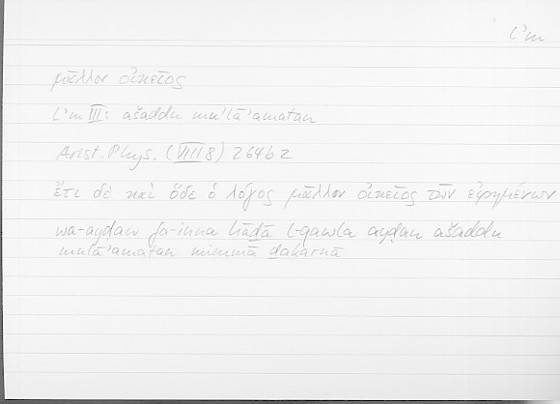 l’m
μᾶλλον οἰκεῖος
l’m III: ašaddu mulā’amatan
Arist. Phys. (VIII 8) 264b2
ἔτι δὲ καὶ ὅδε ὁ λόγος μᾶλλον οἰκεῖος τῶν εἰρημένων
wa-ayḍan fa-inna hāḏā l-qawla ayḍan ašaddu
mulā’amatan mimmā ḏakarnā